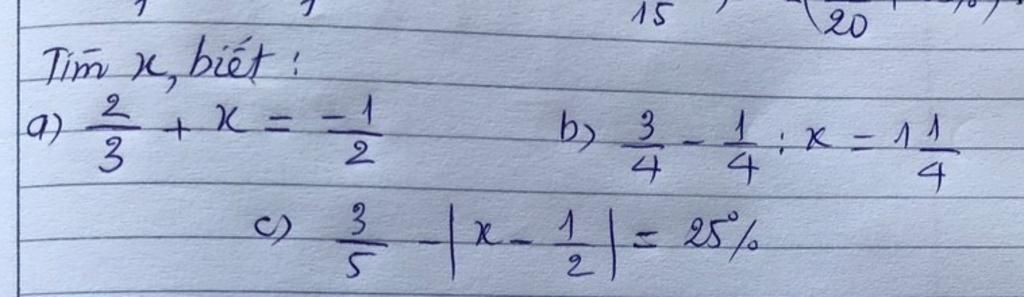 15 20
Tìm x, biết :
a) 2/3 + x = -1/2 b) 3/4 - 1/4 : x = 1 1/4
c) 3/5 - |x - 1/2| = 25%